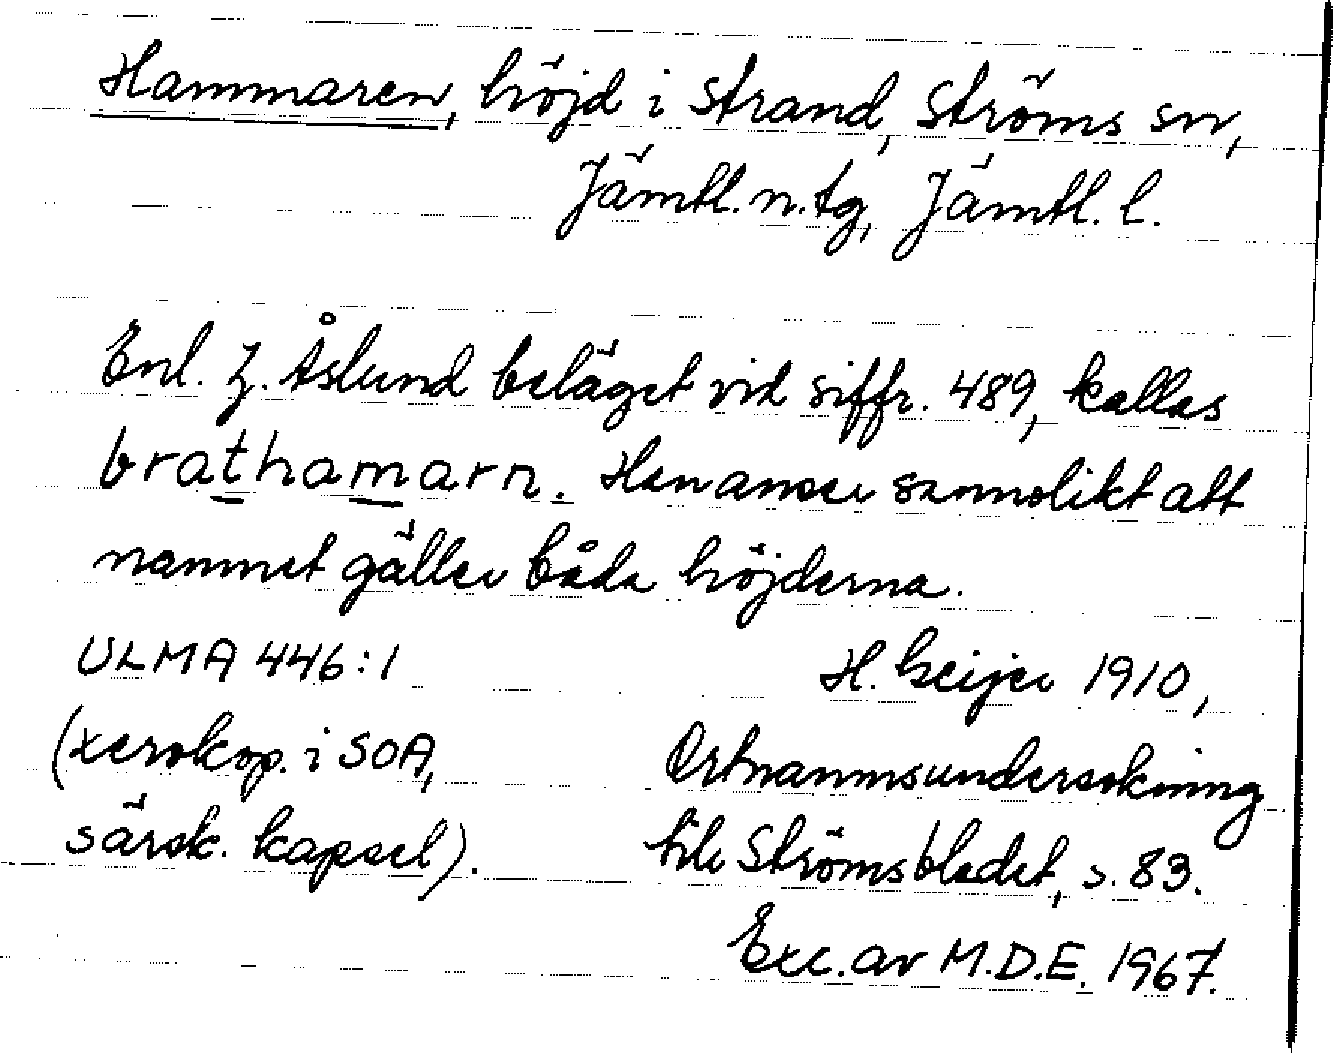 Hammaren, höjd i Strand, Ströms sn,
Jämtl. n. tg, Jämtl. l.
Enl. Z. Åslund beläget vid siffr. 489, kallas
brathamarn. Han anser sannolikt att
namnet gäller båda höjderna.
ULMA 446:1
H. Geijer 1910,
(xerokop. i SOA,
Ortnamnsundersökning
särsk. kapsel).
till Strömsbladet, s. 83.
Exc. av M.D.E. 1967.